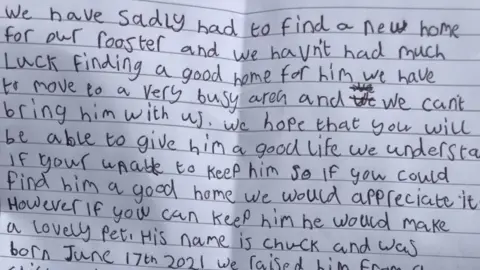 we have sadly had to find a new home
for our rooster and we havn't had much
luck finding a good home for him we have
to move to a very busy area and we can't
bring him with us. we hope that you will
be able to give him a good life we understa
if your unable to keep him so if you could
find him a good home we would appreciate it
However if you can keep him he would make
a lovely pet. His name is chuck and was
born June 17th 2021 we raised him from a